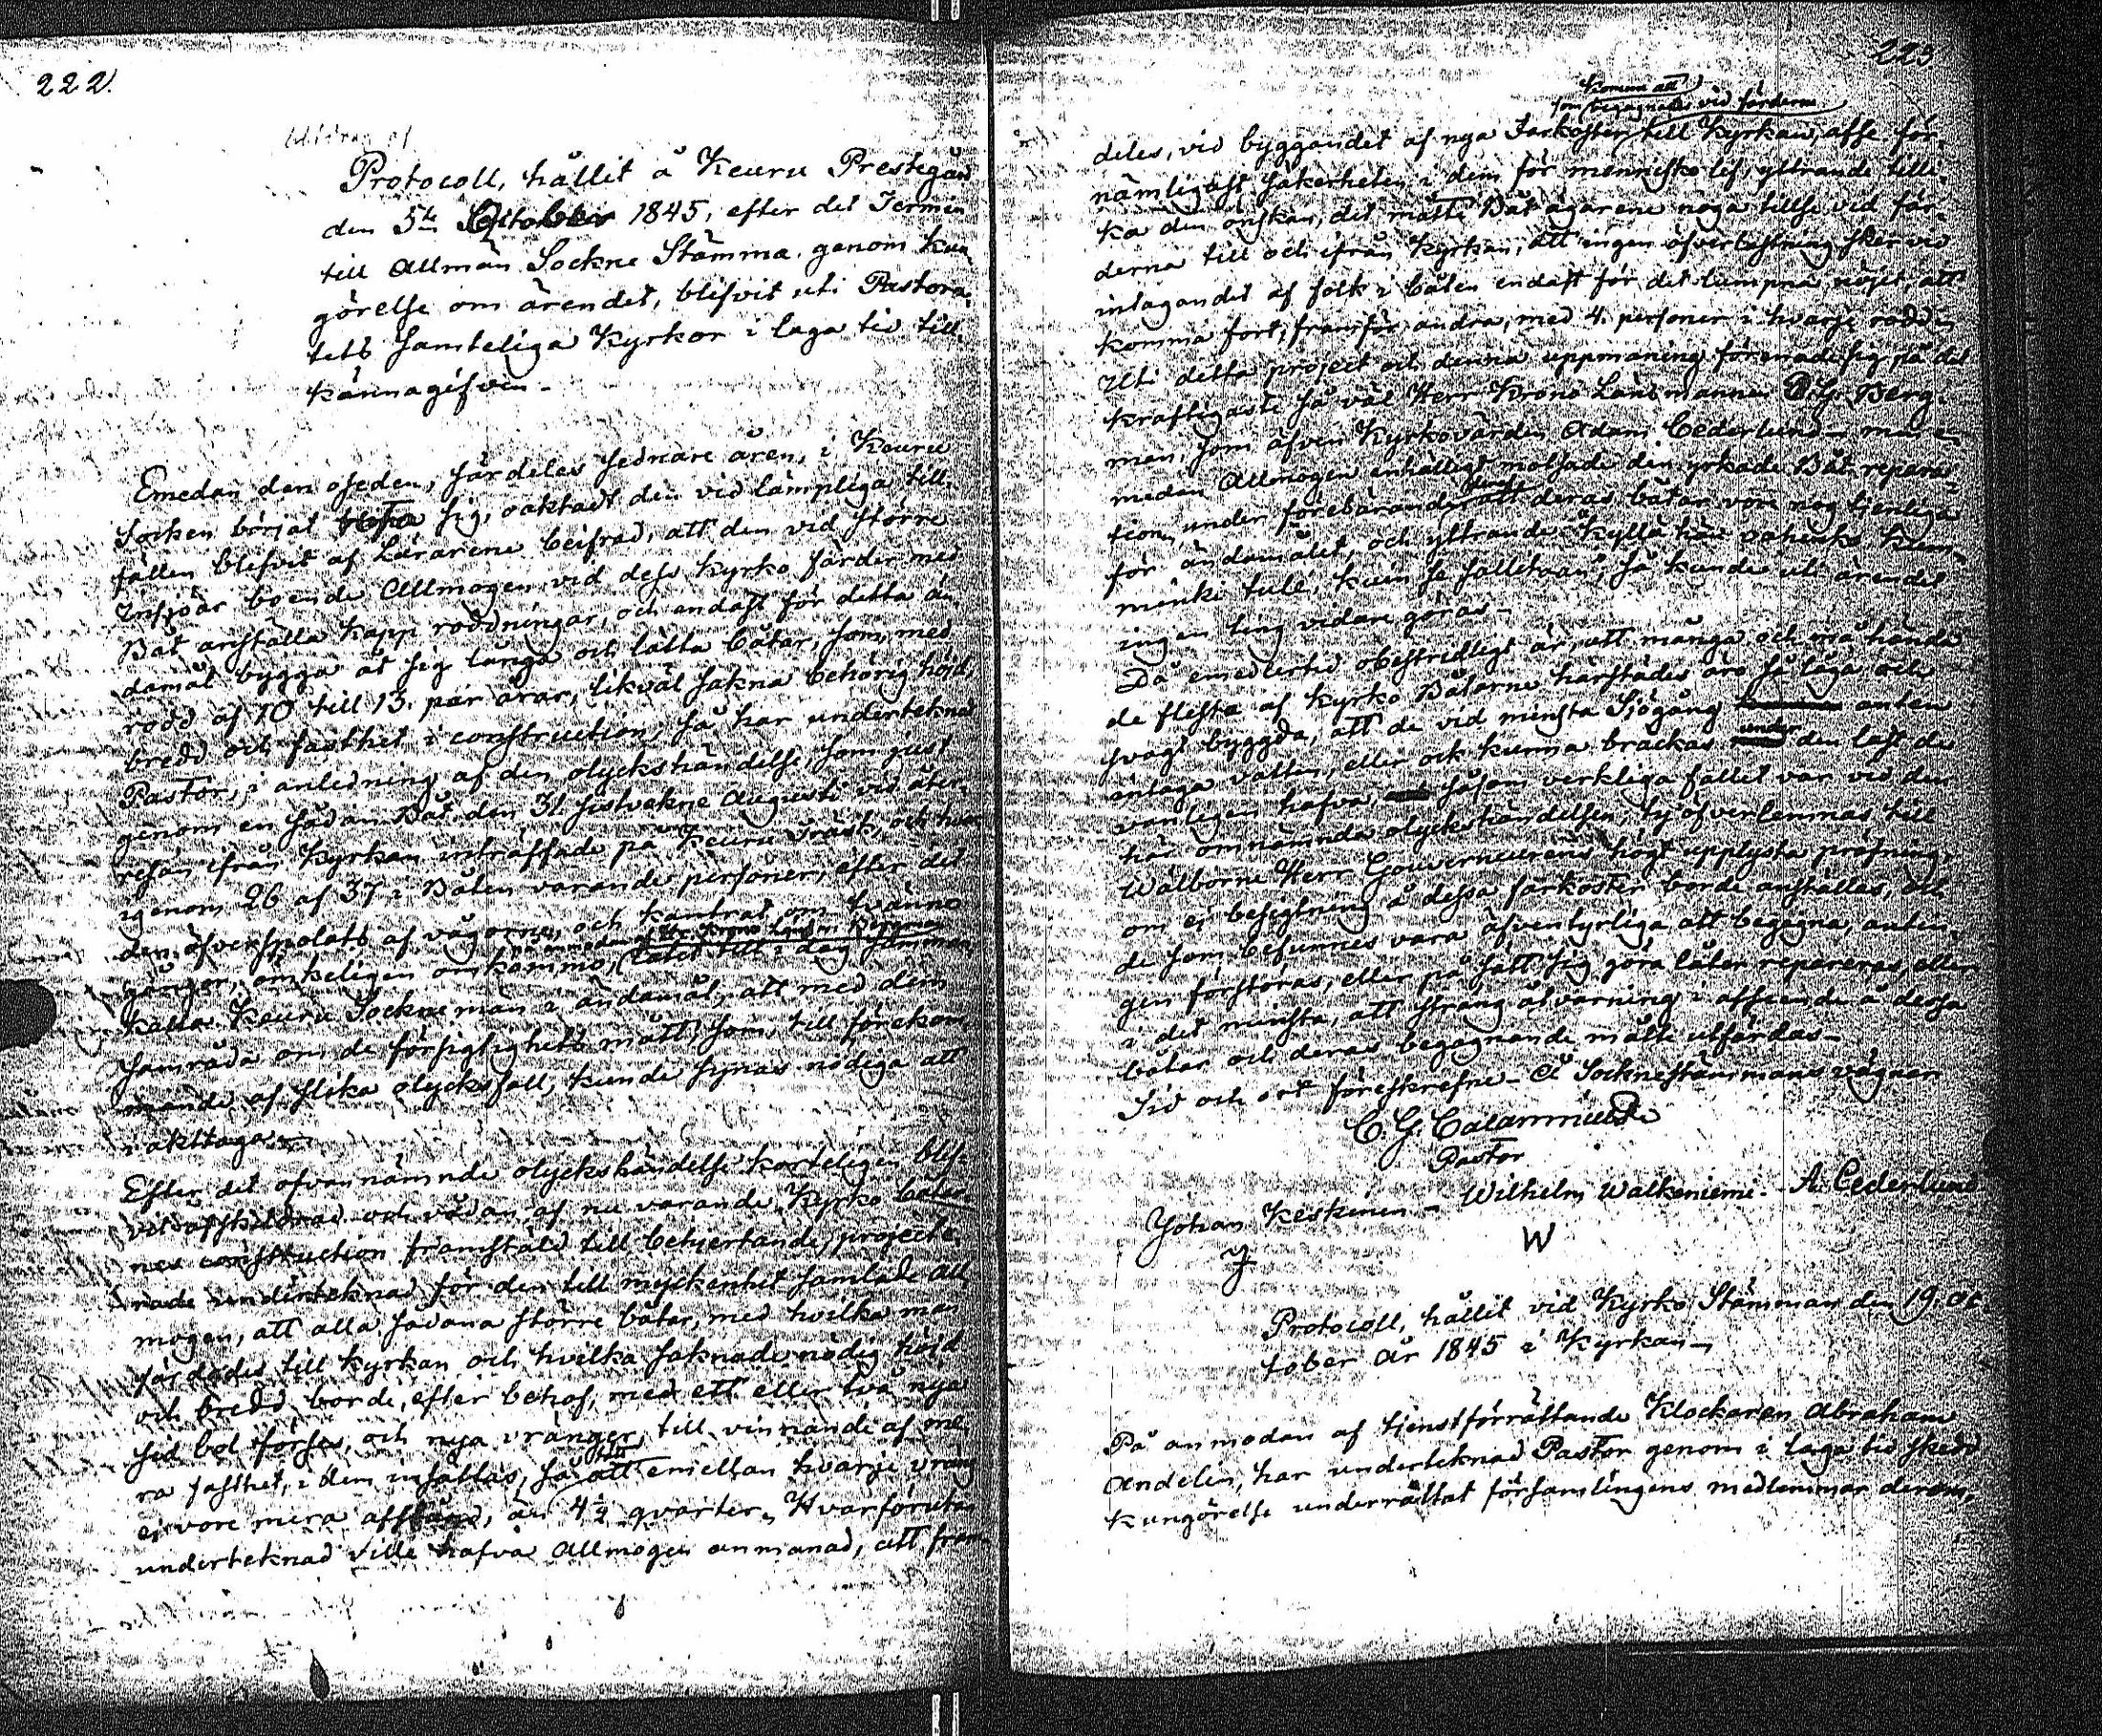 222.
Utdrag af
Protocoll, hållit å Keuru Prestegård
den 5te October 1845, efter det Termin
till Allmän Sockne Stämma, genom kun
görelse om ärendet, blifvit uti Pastora
tets samteliga Kyrkor i laga tid till
kännagifven.
Emedan den oseden, särdeles sednare åren, i Keuru
Socken börjat sig, oaktadt den vid lämpliga till
fällen blifvit af Lärarene beifrad, att den vid större
Insjöar boende Allmogen vid dess Kyrko färder med
Båt anställa kapp roddningar, och endast för detta än
damål bygga åt sig långa och lätta båtar, som, med
rodd af 10 till 13. par åror, likväl sakna behörig höjd,
bredd och fasthet i construction; så har undertecknad
Pastor, i anledning af den olyckshändelse, som just
genom en sådan Båt den 31 sistvekne Augusti vid åter-
resan ifrån Kyrkan inträffade på Keuru Träsk, och hvar
igenom 26 af 37 i Båten varande personer, efter det
den öfverspolats af vågorne, och kantrat om tvänne
gånger, ömkeligen omkommo, låtit till i dag samman
kalla Keuru Socknemän i ändamål, att med dem
samråda om de försigtighets mått, som, till förekom
mande af slika olycksfall, kunde synas nödiga att
iakttaga.
Efter det ofvannämnde olyckshändelse korteligen blif-
vit afskildrad och vådan af nu varande Kyrko båtar
nes construction framstäld till behjertande, projecte
rade undertecknad för den till myckenhet samlade All
mogen, att alla sådana större båtar, med hvilka man
färdades till kyrkan och hvilka saknade nödig höjd
och bredd, borde, efter behof, med ett eller två nya
sid bol förses, och nya vränger, till vinnande af me
ra fasthet, i dem insättas, så att emellan hvarje vräng
ej vore mera afstånd, än 4½ qvarter. Hvarförutan
undertecknad ville hafva Allmogen anmanad, att fram
223
komma att
som begagnas vid färderne
deles, vid byggandet af nya Farkoster till Kyrkan, afse för
nämligast säkerheten i dem för menniskolif, yttrande tilli
ka den önskan, det måtte Båt ägarene noga tillse vid fär
derna till och ifrån Kyrkan, att ingen öfverlastning sker vid
intagandet af folk i båten endast för det lumpna nöjet, att
komma fort, framför andra, med 4. personer i hvarje rodd
Uti detta project och denna uppmaning förenade sig på det
kraftigaste så väl Herr Krono Länsmannen Berg
man, som äfven Kyrkovärden Adam Cederlund
medan Allmogen enhälligt motsade den yrkade Båt repara
tion, under förebärande att deras båtar vore nog tjenliga
för ändamålet, och yttrande: "Kyllä hän vahinko
tule, kuin se sallitaan", så kunde uti ärendet
ingen ting vidare göras.
Då emedlertid obestridligt är, att många och må hända
de flesta af Kyrko Båtarne härstädes äro så låga och
svagt byggda, att de vid minsta Sjögång anten
intaga vatten, eller ock kunna bräckas under den last de
vanligen hafva, såsom verkliga fallet var vid den
här omnämnda olyckshändelsen, ty öfverlemnas till
Wälborne Herr Gouverneurens högt upplysta pröfning,
om ej besigtning å dessa farkoster borde anställas, och
de som befunnes vara äfventyrliga att begagna, antin
gen förstöras, eller på sätt sig göra låter repareras, eller
i det minsta, att sträng åtvarning i afseende å dessa
båtar och deras begagnande måtte utfärdas.
Tid och ort föreskrefne. Å Socknestämmans vägnar
C. G. Calamnius
Pastor
Johan Keskinen - Wilhelm Walkeniemi - A. Cederlund
J W
Protocoll, hållit vid Kyrko Stämman den 19. Oc
tober År 1845 i Kyrkan
På anmodan af tjenstförrättande Klockaren Abraham
Andelin, har undertecknad Pastor genom i laga tid skedd
kungörelse underrättat församlingens medlemmar derom,